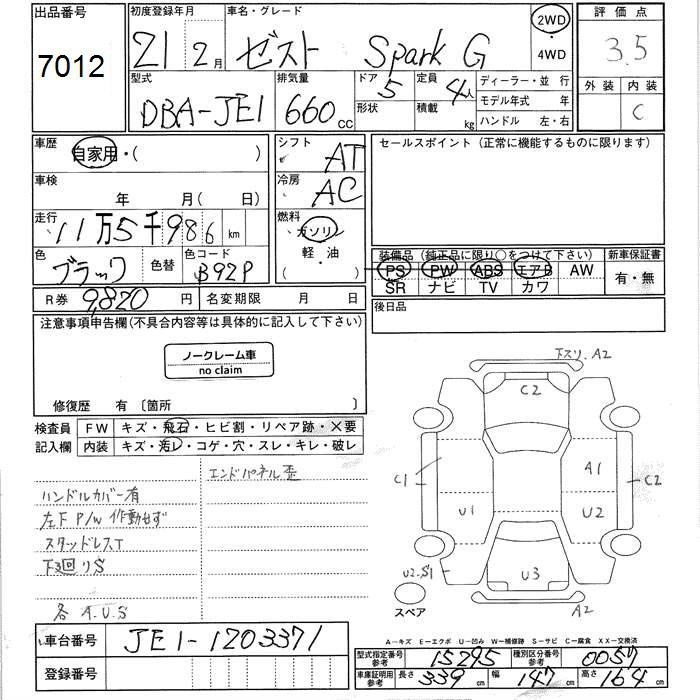 出品番号
7012
初度登録年月
21 2月
車名・グレード
ゼスト Spark G
2WD
・
4WD
評価点
3.5
外装 内装
C
型式
DBA-JE1
排気量
660 CC
ドア 5
形状
定員 4人
積載 kg
ディーラー・並行
モデル年式 年
ハンドル 左・右
車歴
自家用・( )
車検
年 月( 日)
走行
11万5千986 km
色
ブラック
色替
色コード
B92P
シフト
AT
冷房
AC
燃料
ガソリン
軽・油
セールスポイント(正常に機能するものに限ります)
装備品(純正品に限り○をつけて下さい)
PS PW ABS エアB AW
SR ナビ TV カワ
新車保証書
有・無
R券 9,820円
名変期限 月 日
後日品
注意事項申告欄(不具合内容等は具体的に記入して下さい)
ノークレーム車
no claim
修復歴 有〔箇所 〕
検査員
記入欄
FW キズ・飛石・ヒビ割・リペア跡・X要
内装 キズ・汚レ・コゲ・穴・スレ・キレ・破レ
エンドパネル歪
ハンドルカバー有
左F P/W 作動せず
スタッドレスT
下廻りS
各 A.U.S
下スリ.A2
C2
C1
A1
C2
U1
U2
U2.S1
U3
A2
スペア
車台番号
JE1-1203371
登録番号
A-キズ E-エクボ U-凹み W-補修跡 S-サビ C-腐食 XX-交換済
型式指定番号
参考
15295
種別区分番号
参考
0057
車庫証明用
参考
長さ 339 cm
幅 147 cm
高さ 164 cm